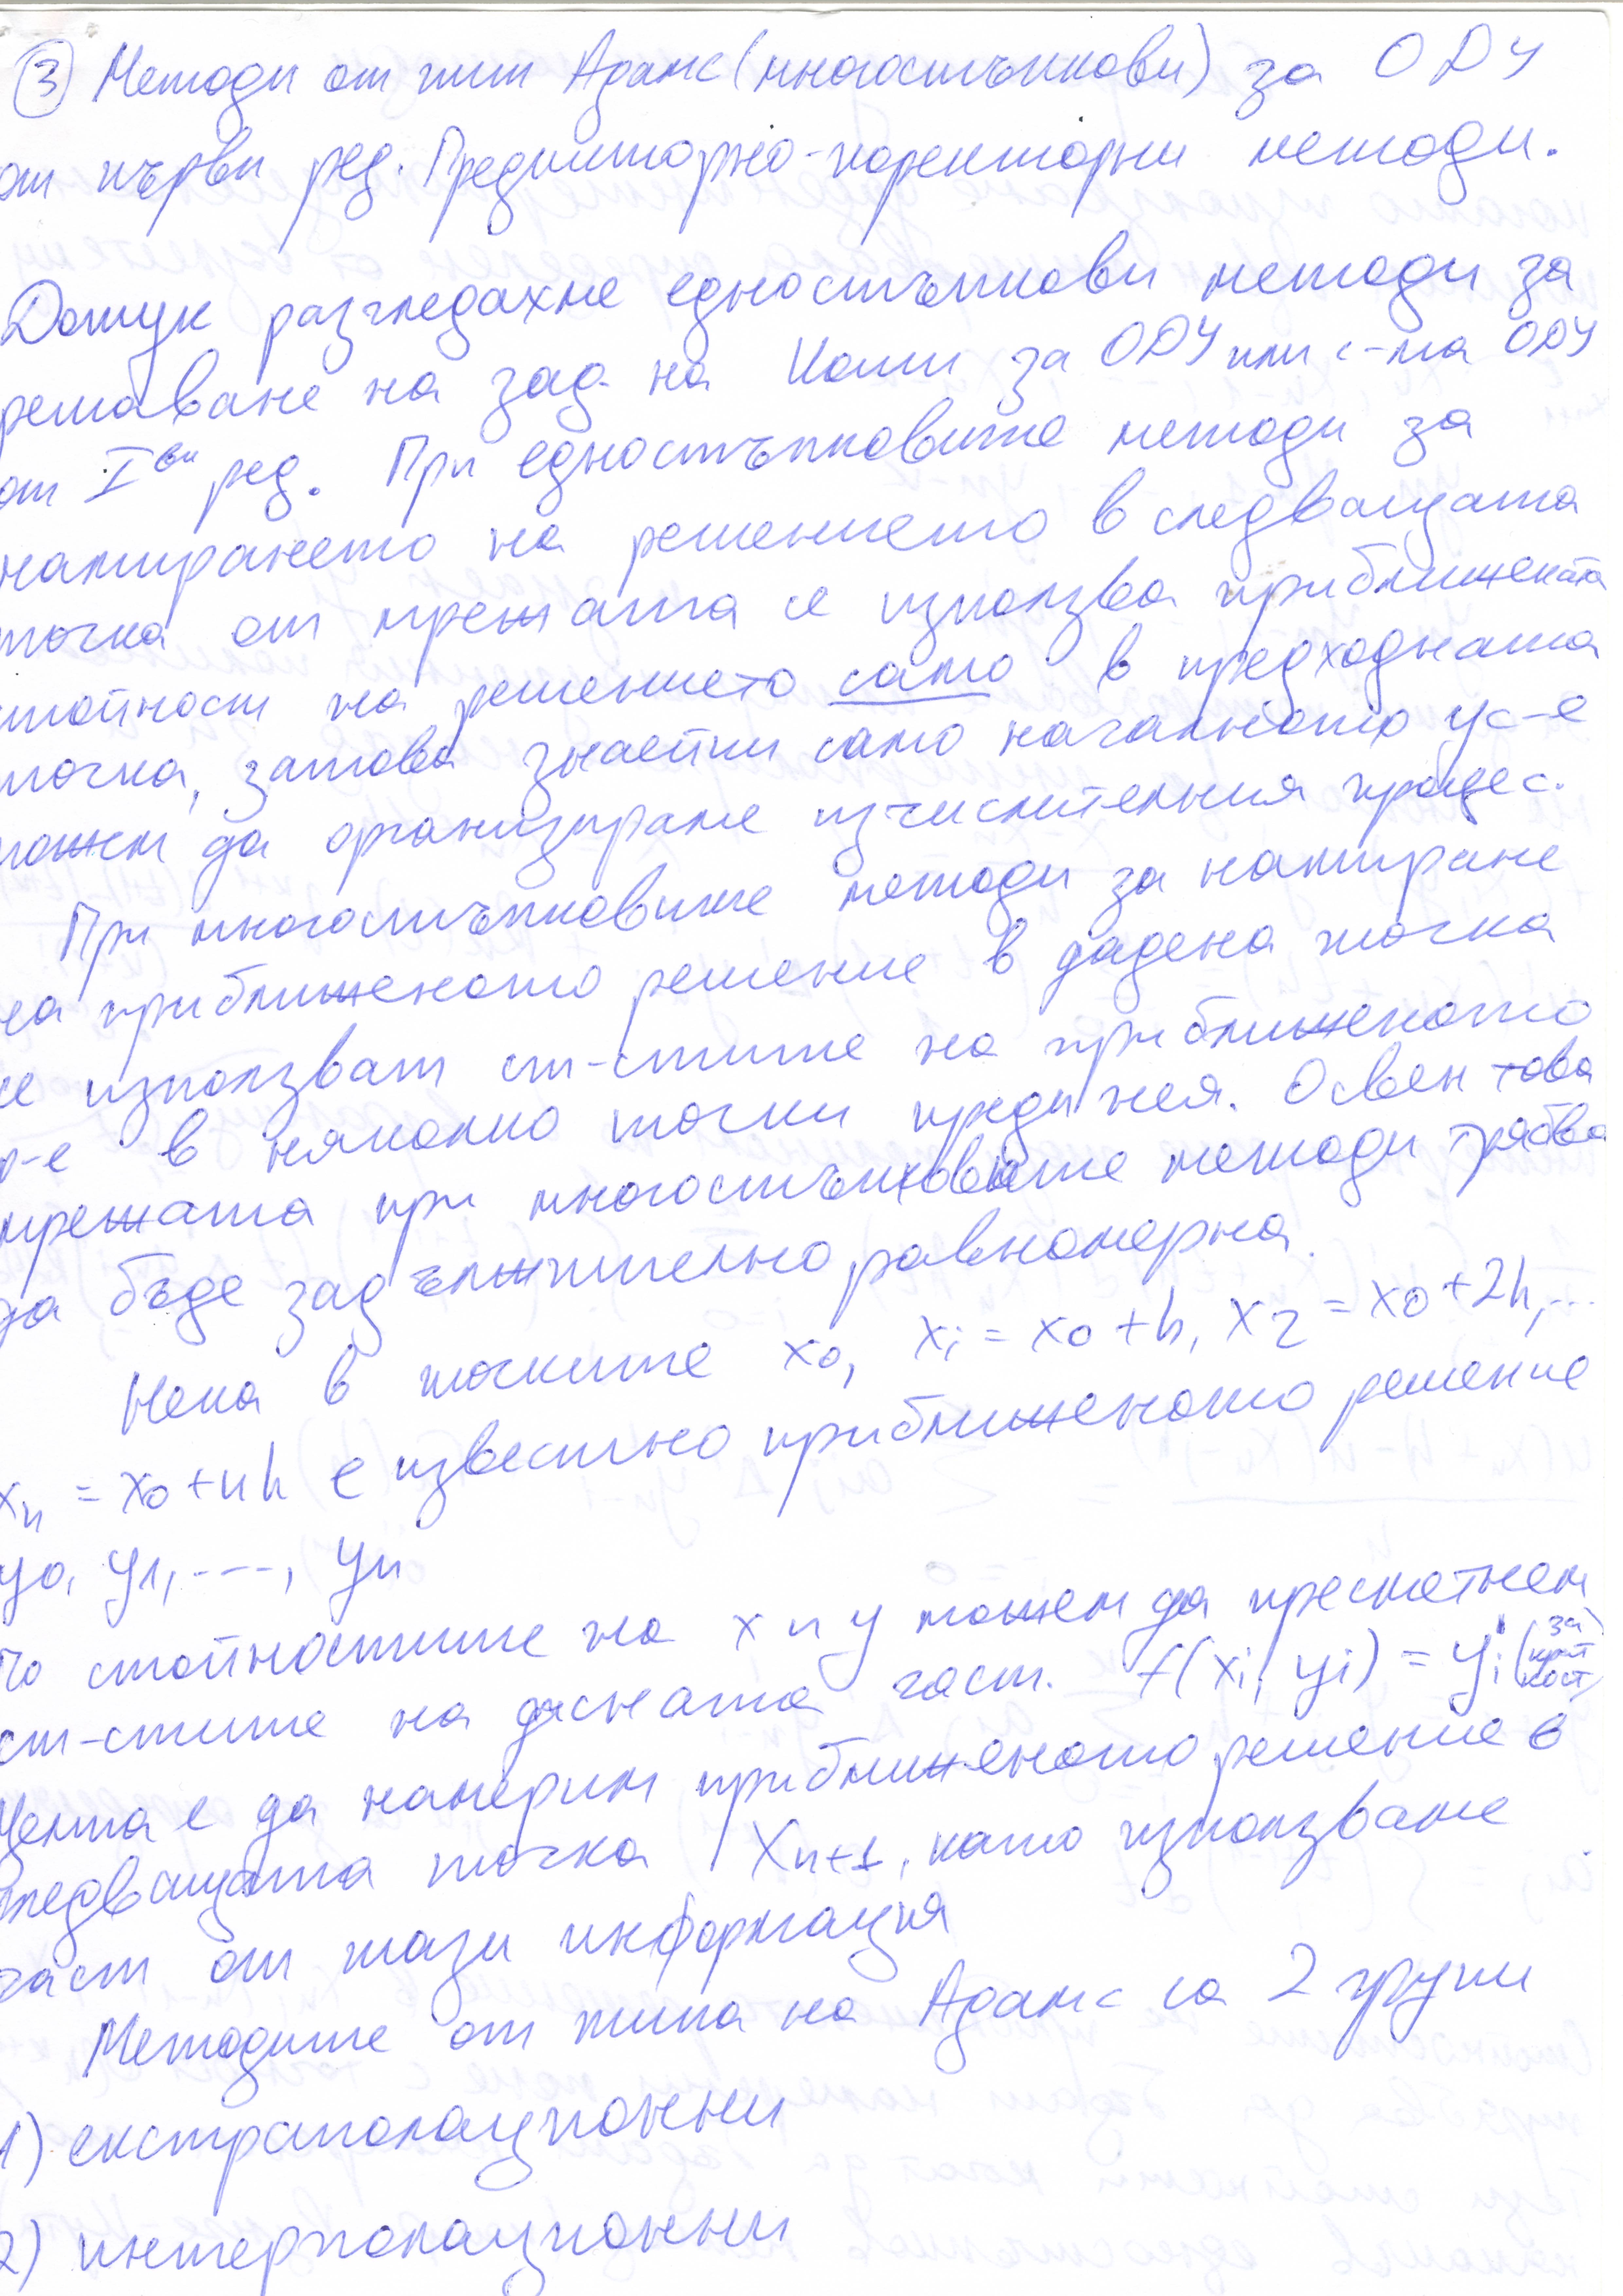 ③ Методи от тип Адамс (многостъпкови) за ОДУ
от първи ред. Предикторно-коректорни методи.
Дотук разгледахме едностъпкови методи за
решаване на зад. на Коши за ОДУ или с-ма ОДУ
от Iви ред. При едностъпковите методи за
намирането на решението в следващата
точка от мрежата се използва приближената
стойност на решението само в предходната
точка, затова знаейки само началното ус-е
можем да организираме изчислителния процес.
При многостъпковите методи за намиране
на приближеното решение в дадена точка
се използват ст-стите на приближеното
р-е в няколко точки преди нея. Освен това
мрежата при многостъпковите методи трябва
да бъде задължително равномерна.
Нека в точките x0, xi = x0 + h, x2 = x0 + 2h, ...
xn = x0 + nh е известно приближеното решение
y0, y1, ..., yn
По стойностите на x и y можем да пресметнем
ст-стите на дясната част. f(xi, yi) = y'i (за краткост)
Целта е да намерим приближеното решение в
следващата точка xn+1, като използваме
част от тази информация
Методите от типа на Адамс са 2 групи
1) екстраполационни
2) интерполационни